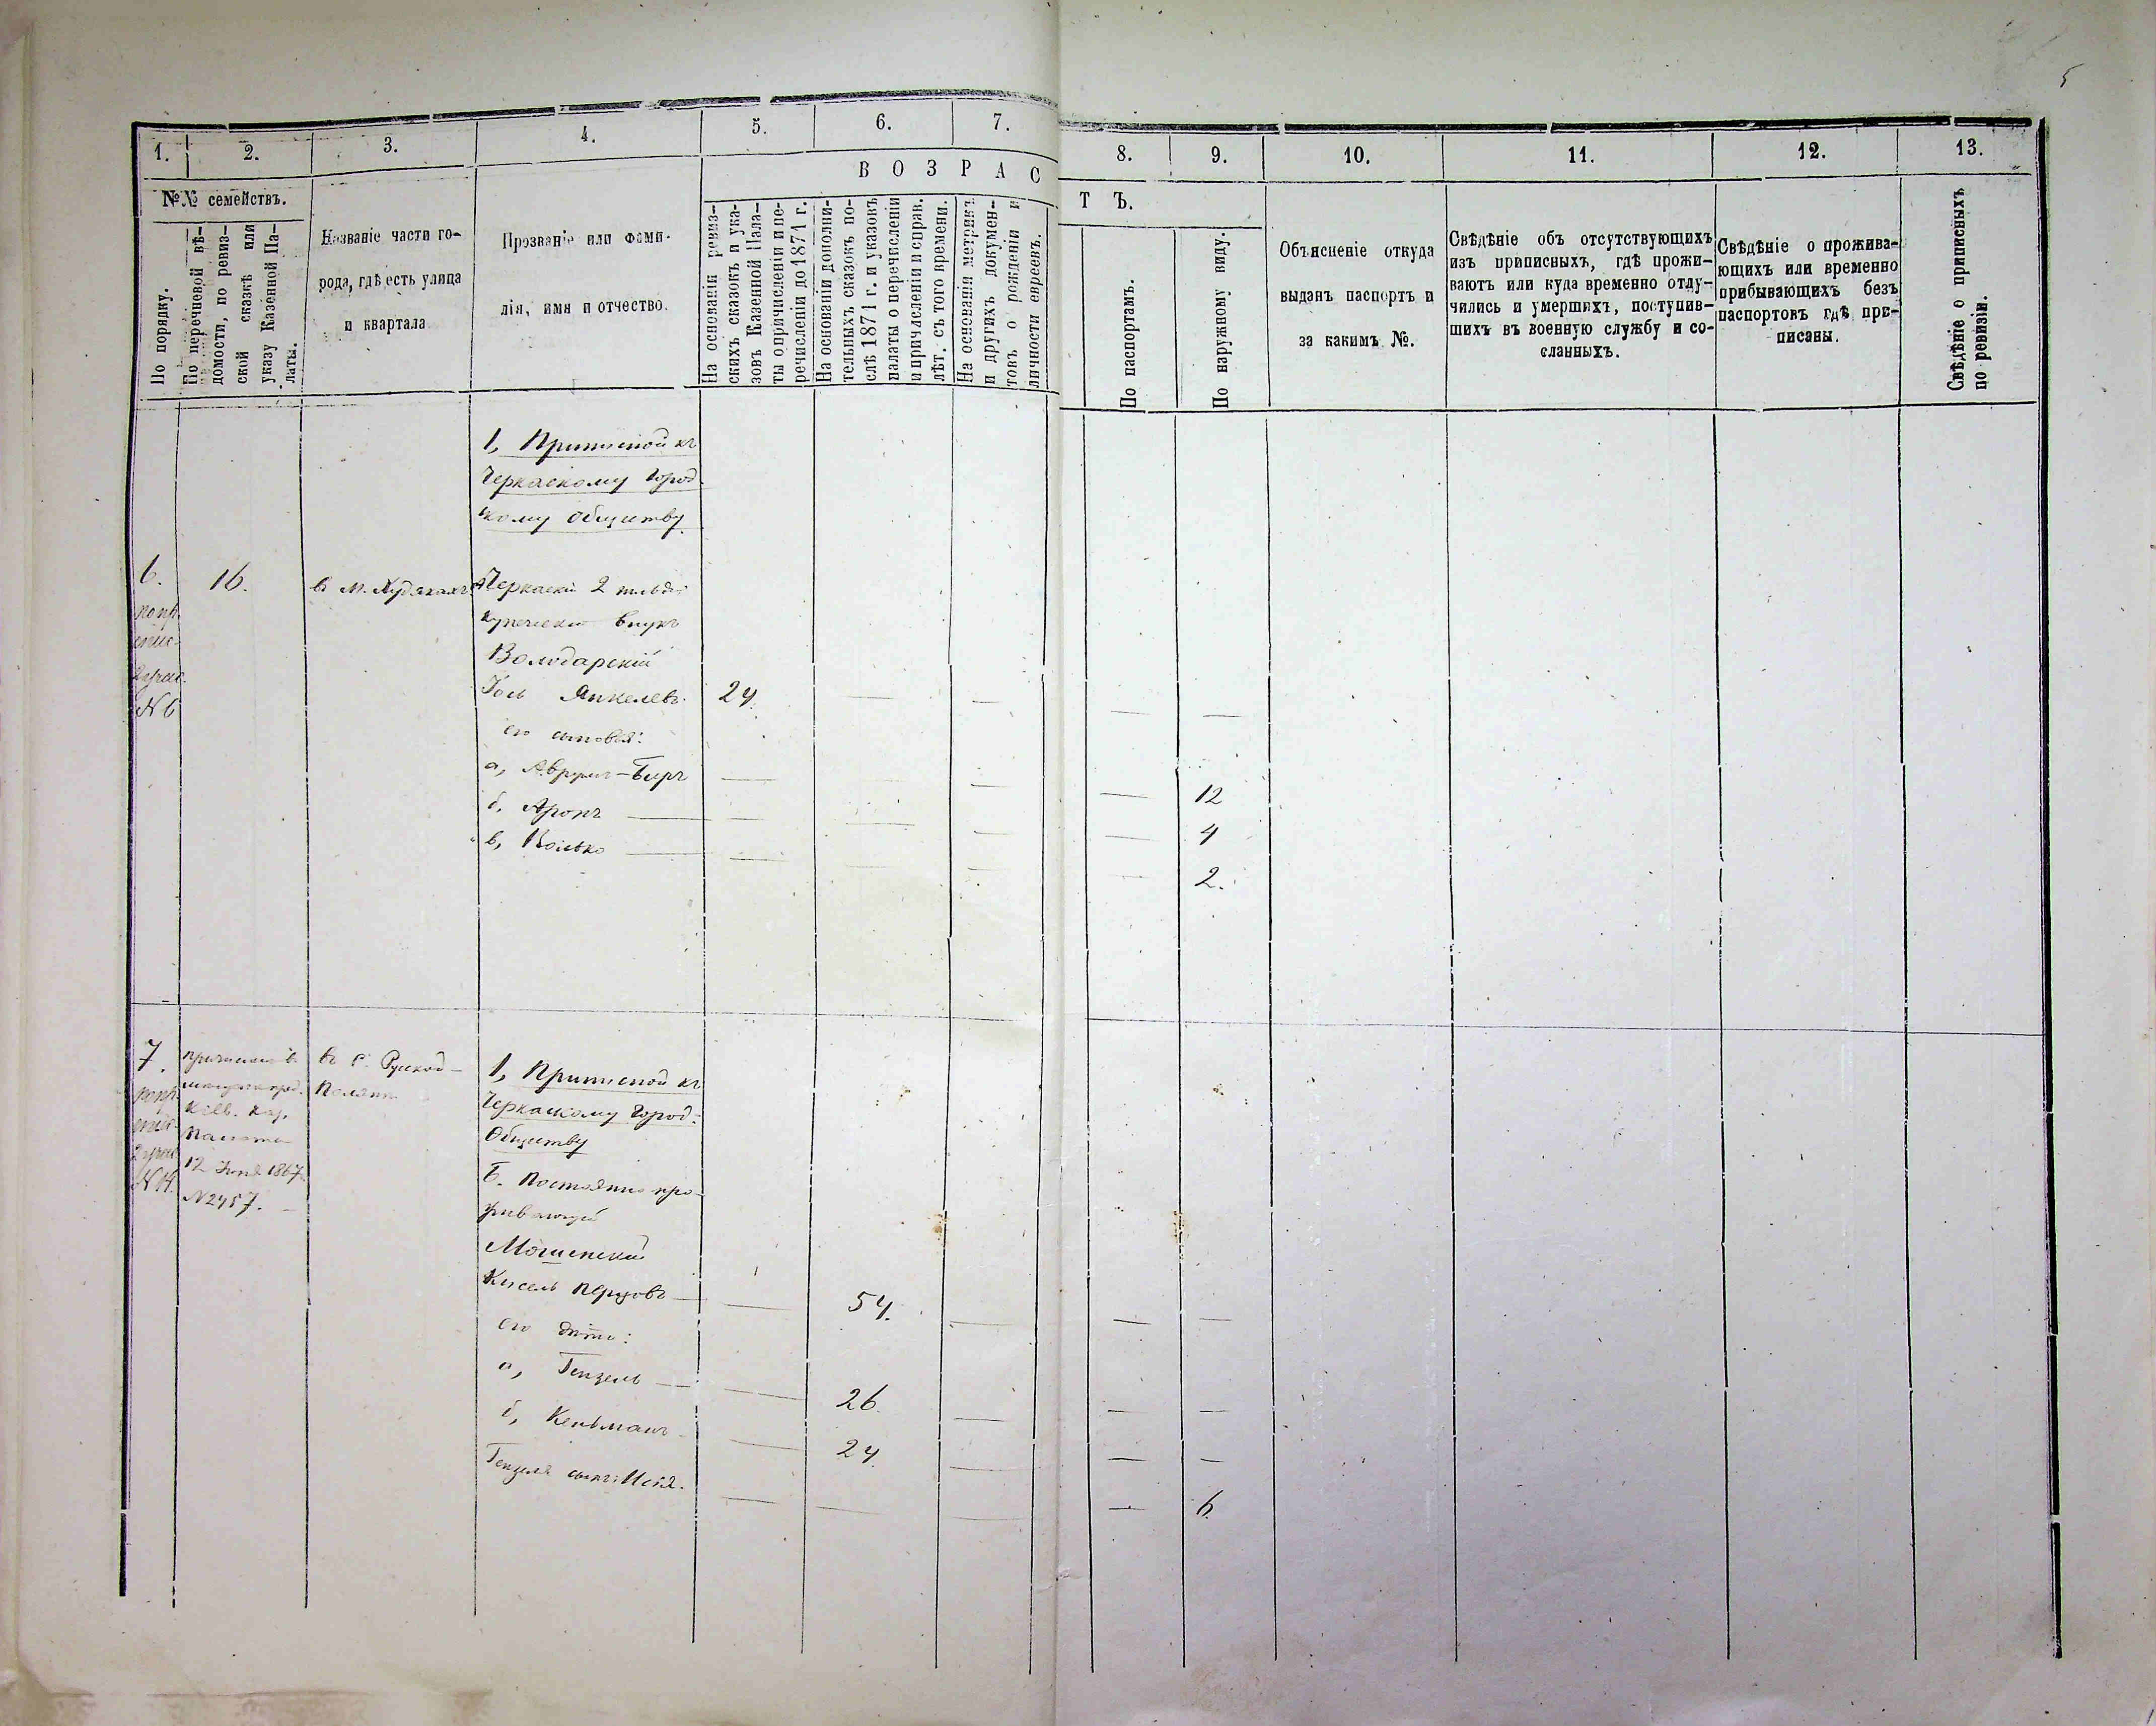 5
1.
2.
3.
4.
5.
6.
7.
8.
9.
10.
11.
12.
13.
В О З Р А С
Т Ъ.
№№ семействъ.
По порядку.
По перечневой вѣ-
домости, по ревиз-
ской сказкѣ или
указу Казенной Па-
латы.
Названіе части го-
рода, гдѣ есть улица
и квартала
Прозваніе или Фами-
лія, имя и отчество.
На основаніи ревиз-
скихъ сказокъ и ука-
зовъ Казенной Пала-
ты о причисленіи и пе-
речисленіи до 1871 г.
На основаніи дополни-
тельныхъ сказокъ по-
слѣ 1871 г. и указовъ
палаты о перечисленіи
и причисленіи и справ.
лѣт. съ того времени.
На основаніи метрикъ
и другихъ докумен-
товъ о рожденіи и
личности евреевъ.
По паспортамъ.
По наружному виду.
Объясненіе откуда
выданъ паспортъ и
за какимъ №.
Свѣдѣніе объ отсутствующихъ
изъ приписныхъ, гдѣ прожи-
ваютъ или куда временно отлу-
чились и умершихъ, поступив-
шихъ въ военную службу и со-
сланныхъ.
Свѣдѣніе о прожива-
ющихъ или временно
прибывающихъ безъ
паспортовъ гдѣ при-
писаны.
Свѣдѣніе о приписныхъ
по ревизіи.
1, Приписной къ
Черкаскому Город
скому Обществу
6.
N 6
16.
в М. Худякахъ
Черкаскій 2 гильдіи
купеческій внукъ
Володарскій
Іось Янкелевъ 24
его сыновья:
а, Аврумъ-Беръ 12
б, Аронъ 4
в, Волько 2.
7.
12 Іюня 1867
N 2457.
въ С. Русской-
Полянѣ
1, Приписной къ
Черкаскому Город:
Обществу
Б. Постоянно про-
живающій
Мошенскій
Кисель Перцовъ 54.
его дѣти:
а, Гензель 26
б, Кельманъ 24
Гензеля сынъ: 6